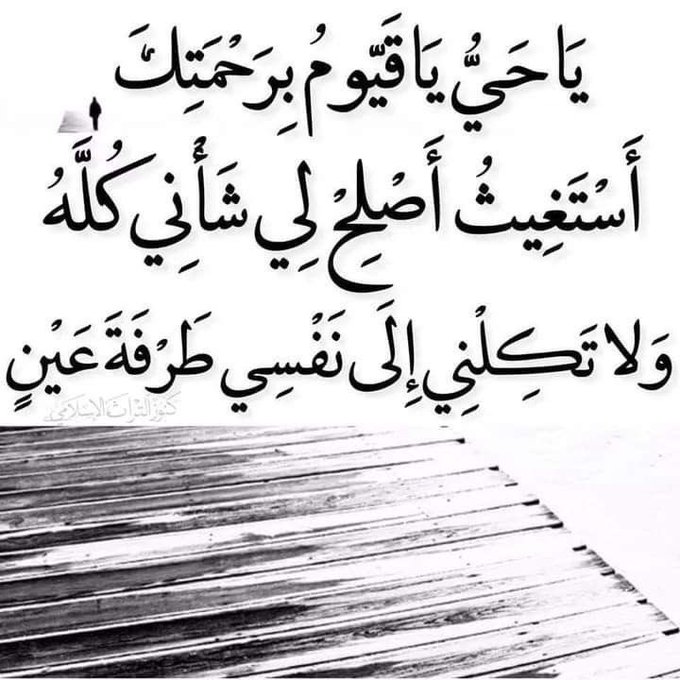 يَا حَيُّ يَا قَيُّومُ بِرَحْمَتِكَ
أَسْتَغِيثُ أَصْلِحْ لِي شَأْنِي كُلَّهُ
وَلا تَكِلْنِي إِلَى نَفْسِي طَرْفَةَ عَيْنٍ
كنوز التراث الإسلامي